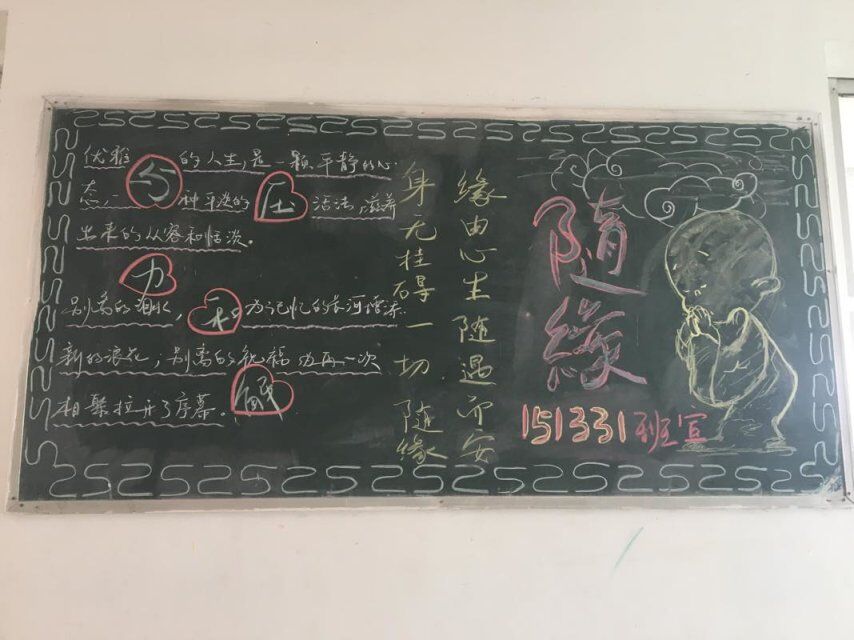 优雅的人生,是一颗平静的心
态,一种平淡的活法,滋养
出来的从容和恬淡。
别离的泪水,为记忆的长河增添
新的浪花;别离的祝福为再一次
相聚拉开了序幕。
与
压
力
和
解
身无挂碍一切随缘
缘由心生随遇而安
随缘
151331班宣